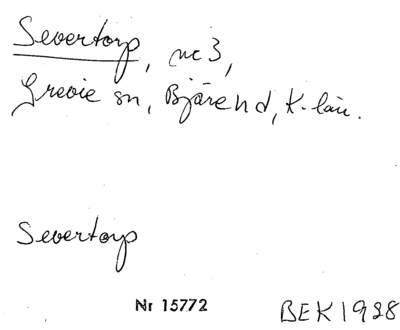 Severtorp, nr 3,
Grevie sn, Bjäre hd, K-län.
Severtorp
Nr 15772 BEK 1928